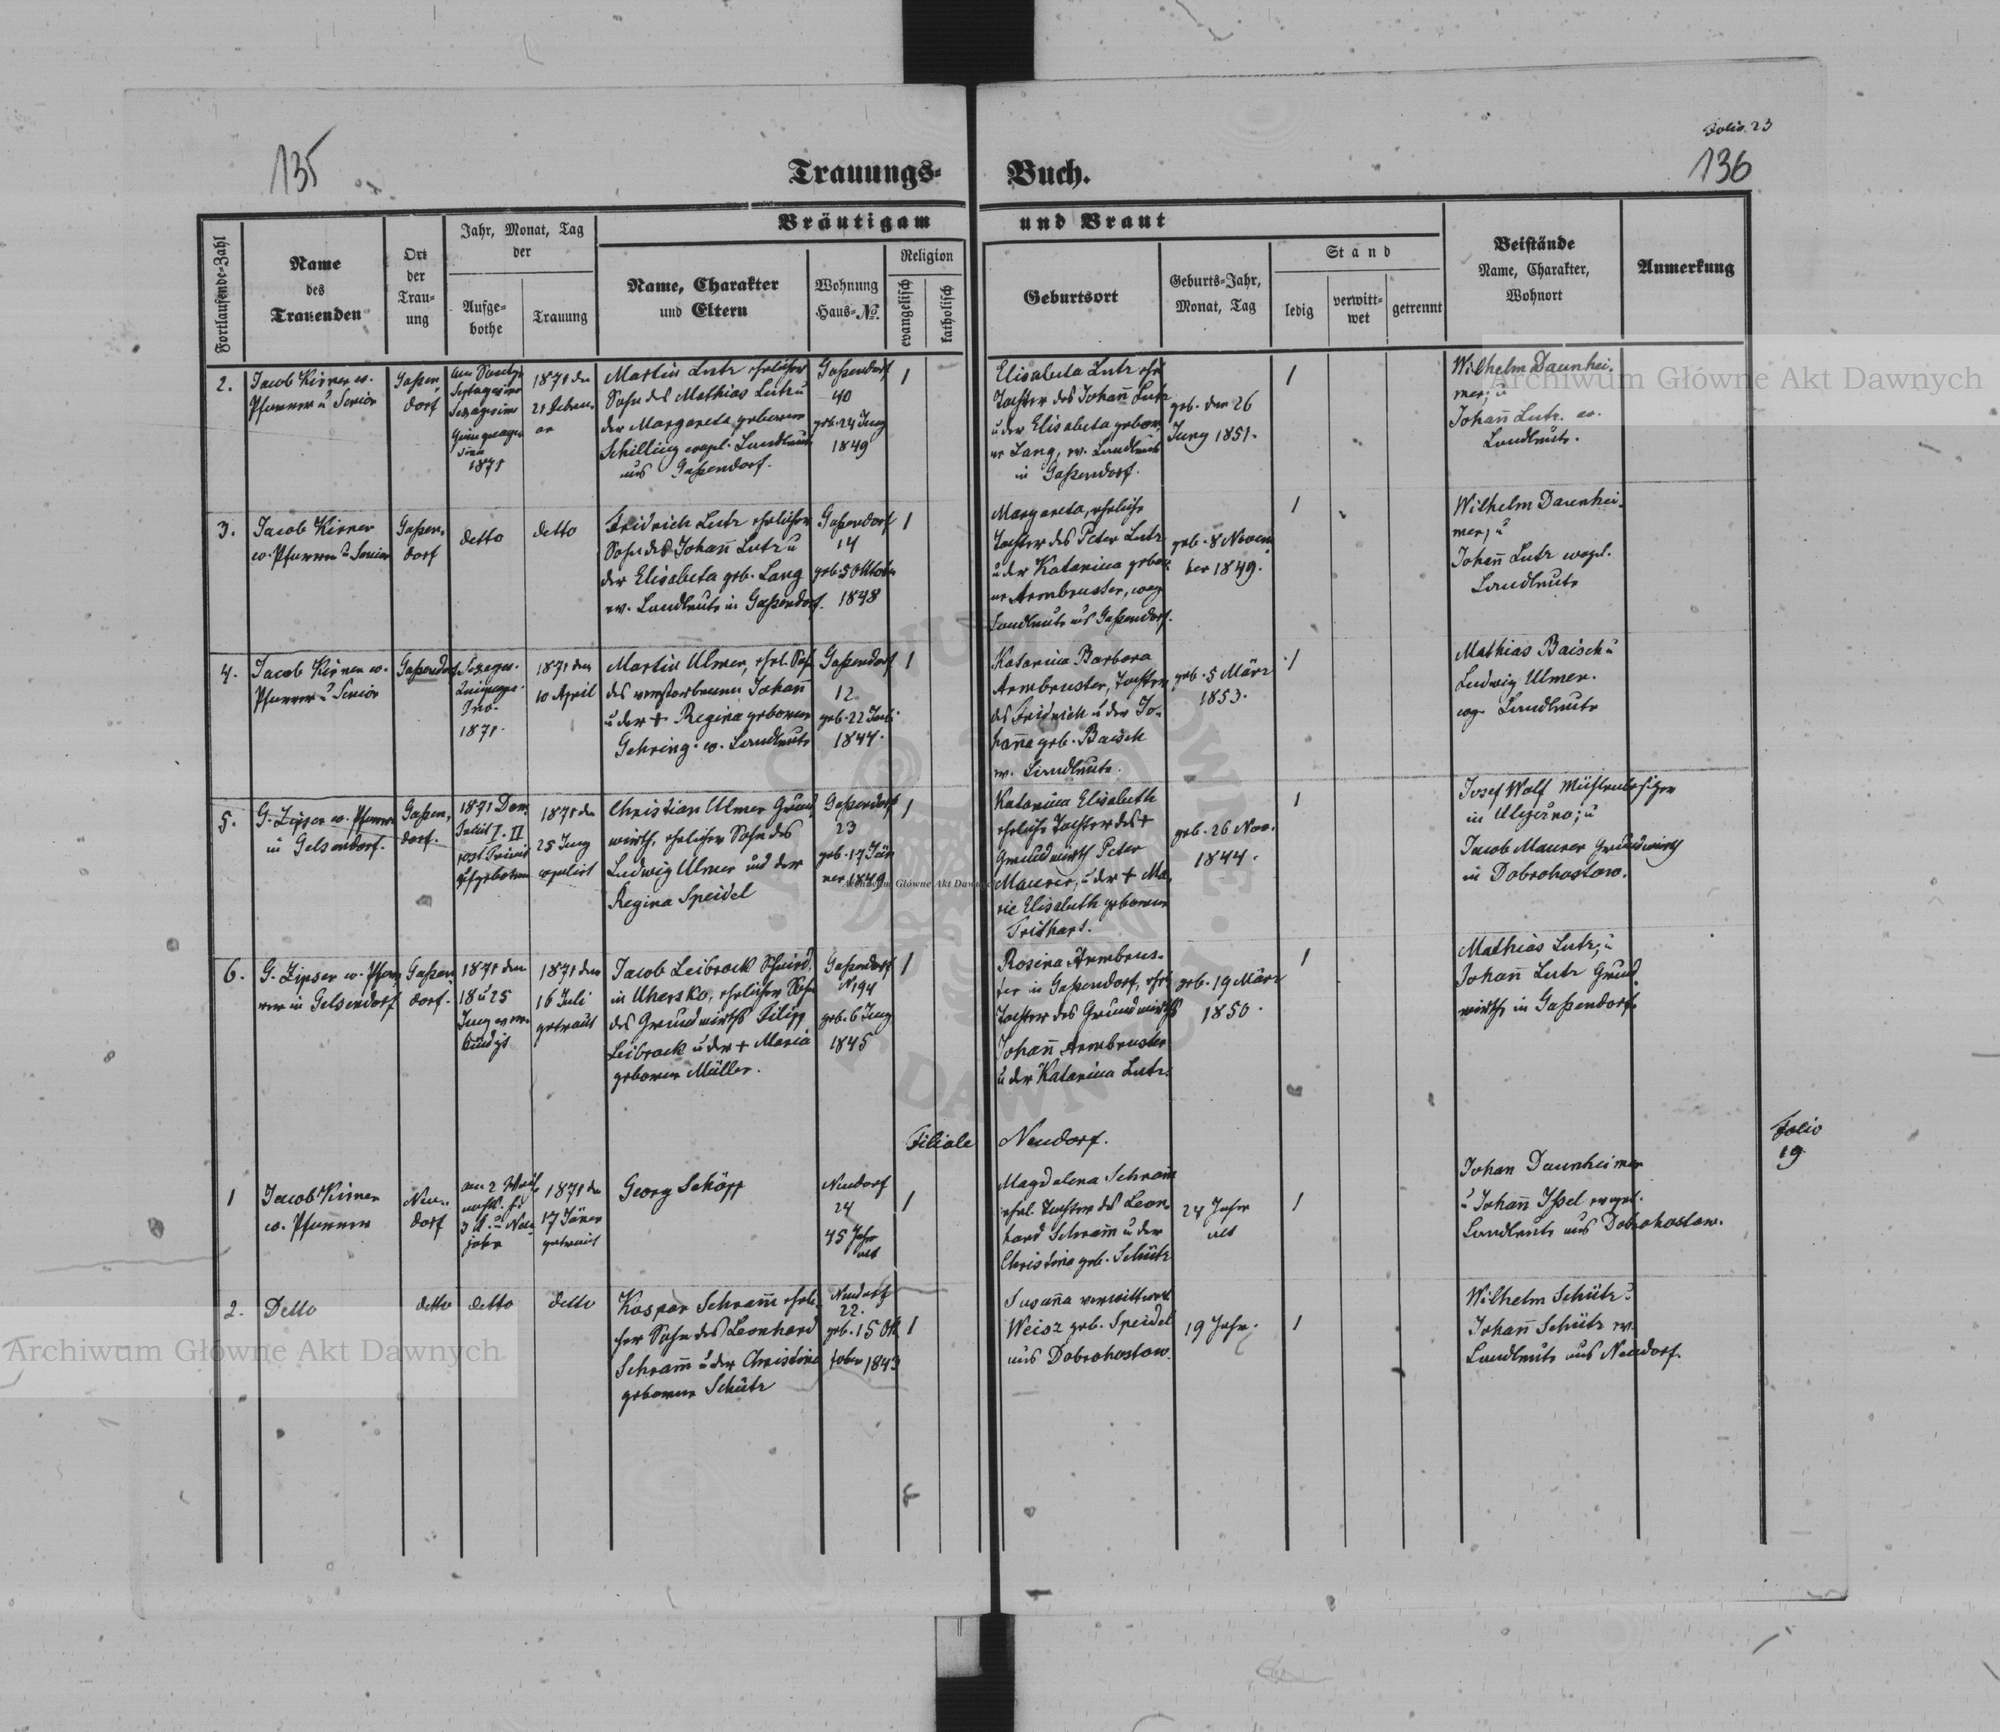 Folio 23
135
136
Trauungs- Buch.
Fortlaufende-Zahl
Name
des
Trauenden
Ort
der
Trau-
ung
Jahr, Monat, Tag
der
Aufge-
bothe
Trauung
Bräutigam und Braut
Name, Charakter
und Eltern
Wohnung
Haus-No.
Religion
evangelisch
katholisch
Geburtsort
Geburts-Jahr,
Monat, Tag
Stand
ledig
verwitt-
wet
getrennt
Beistände
Name, Charakter,
Wohnort
Anmerkung
2.
Jacob Kirner ev.
Pfarrer u Senior
Gaßen
dorf
Septagesima
Sexagesima
Quinquages
sima
1871
1871 den
21 Februar
Martin Lutz ehelicher
Sohn des Mathias Lutz u
der Margareta geborene
Schilling evgl. Landleute
aus Gaßendorf.
Gaßendorf
40
geb. 24 Juny
1849
1
Elisabeta Lutz ehe
Tochter des Johañ Lutz
u der Elisabeta gebor
ne Lang, ev. Landleute
in Gaßendorf.
geb. den 26
Juny 1851.
1
Wilhelm Daunhei-
mer; u
Johañ Lutz. ev.
Landleute.
3.
Jacob Kirner
ev. Pfarrer u Senior
Gaßen-
dorf
detto
detto
Fridrich Lutz ehelicher
Sohn des Johañ Lutz u
der Elisabeta geb. Lang
ev. Landleute in Gaßendorf.
Gaßendorf
14
geb. 5 Oktober
1848
1
Margareta, eheliche
Tochter des Peter Lutz
u der Katarina gebor
ne Armbruster, evg
Landleute aus Gaßendorf.
geb. 8 Novem
ber 1849.
1
Wilhelm Daunhei-
mer; u
Johañ Lutz evgl.
Landleute
4.
Jacob Kirner ev.
Pfarrer u Senior
Gaßendorf
Sexages.
1871.
1871 den
10 April
Martin Ulmer, ehel. Sohn
des verstorbenen Johañ
u der + Regina geborene
Gehring. ev. Landleute
Gaßendorf
12
geb. 22
1844.
1
Katarina Barbara
Armbruster, Tochter
des Fridrich u der Jo-
hañe geb. Baisch
ev. Landleute.
geb. 5 März
1853.
1
Mathias Baisch u
Ludwig Ulmer.
evg. Landleute
5.
G. Zipser ev. Pfarrer
in Gelsendorf.
Gaßen-
dorf.
1871 Dom
I. II
post Trinit
aufgeboten
1871 den
25 Juny
copulirt
Christian Ulmer Grund
wirth, ehelicher Sohn des
Ludwig Ulmer und der
Regina Speidel
Gaßendorf
23
geb. 17 Jän
ner 1849
1
Katarina Elisabeth
eheliche Tochter des +
Grundwirth Peter
Maurer, u der + Ma-
rie Elisabeth geborene
Trithart.
geb. 26 Nov.
1844.
1
Josef Wolf Mühlenbesitzer
in Ulyczno; u
Jacob Maurer Grundwirth
in Dobrohostow.
6.
G. Zipser ev. Pfar-
rer in Gelsendorf
Gaßen
dorf.
1871 den
18 u 25
Juny ver-
kündigt
1871 den
16 Juli
getraut
Jacob Leibrock Schmid
in Uhersko, ehelicher Sohn
des Grundwirths Filipp
Leibrock u der + Maria
geborene Müller.
Gaßendorf
N 94
geb. 6 Juny
1845
1
Rosina Armbrus-
ter in Gaßendorf, ehel
Tochter des Grundwirths
Johañ Armbruster
u der Katarina Lutz.
geb. 19 März
1850.
1
Mathias Lutz, u
Johañ Lutz Grund
wirthe in Gaßendorf.
Filiale Neudorf.
Folio
19
1
Jacob Kirner
ev. Pfarrer
Neu-
dorf
am 2 Weih
3 K. u Neu
jahr
1871 den
17 Jäner
getraut
Georg Schöpp
Neudorf
24
45 Jahr
alt
1
Magdalena Schram
ehel. Tochter des Leon-
hard Schram u der
Christina geb. Schütz
24 Jahr
alt
1
Johan Daunheimer
u Johañ Issel evgel.
Landleute aus Dobrohostow.
2.
Detto
detto
detto
detto
Kaspar Schram eheli-
cher Sohn des Leonhard
Schram u der Christina
geborene Schütz
Neudorf
22.
geb. 15 Ok
tober 1849
1
Susaña verwittwete
Weisz geb. Speidel
aus Dobrohostow.
19 Jahr.
1
Wilhelm Schütz u
Johañ Schütz ev.
Landleute aus Neudorf.
Archiwum Główne Akt Dawnych
Archiwum Główne Akt Dawnych
Archiwum Główne Akt Dawnych